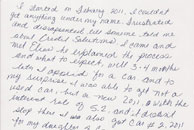 I started in January 2011, I couldn't
get anything under my name. Frustrated
and disappointed, but someone told me
about Credit Solutions, I came and
met Elias he explained the process
and what to expect, well 3-4 months
later I applied for a car and to
my surprise I was able to get not a
used car, but a new 2011, with the
interest rate of 5.5 and I didn't
stop there I was also got Car # 2, 2011
for my daughter